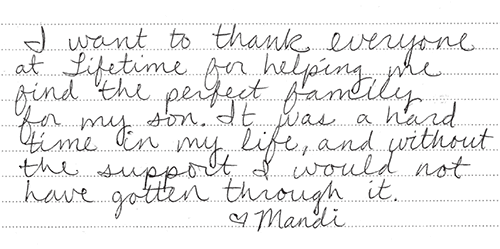 I want to thank everyone
at Lifetime for helping me
find the perfect family
for my son. It was a hard
time in my life, and without
the support I would not
have gotten through it.
♡ Mandi